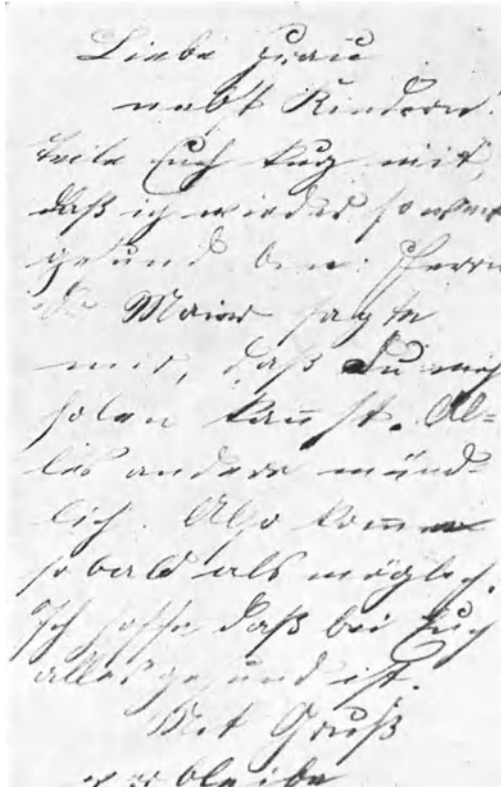 Liebe Frau
nebst Kindern!
teile Euch kurz mit,
daß ich wieder soweit
gesund bin. Herrn
Maier sagte
mir, daß Du mich
holen kannst. Al=
les andere münd-
lich. Also komme
sobald als möglich.
Ich hoffe daß bei Euch
alles gesund ist.
Mit Gruß
verbleibe